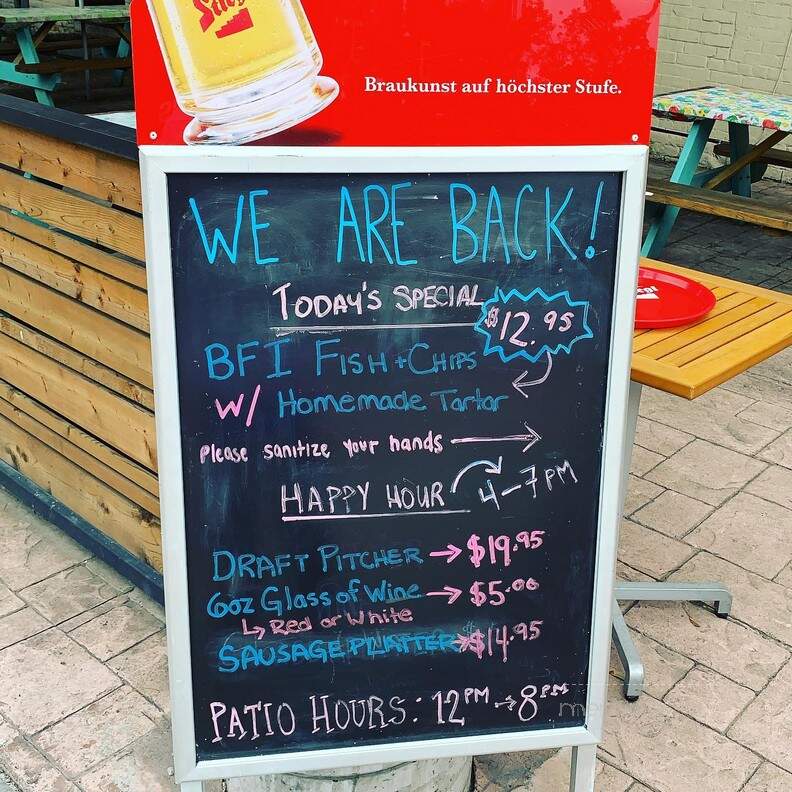 Braukunst auf höchster Stufe.
WE ARE BACK!
TODAY'S SPECIAL
$12.95
BFI FISH + CHIPS
W/ Homemade Tartar
Please sanitize your hands →
HAPPY HOUR 4-7 PM
DRAFT PITCHER → $19.95
6oz Glass of Wine → $5.00
↳ Red or White
SAUSAGE PLATTER → $14.95
PATIO HOURS: 12PM → 8PM